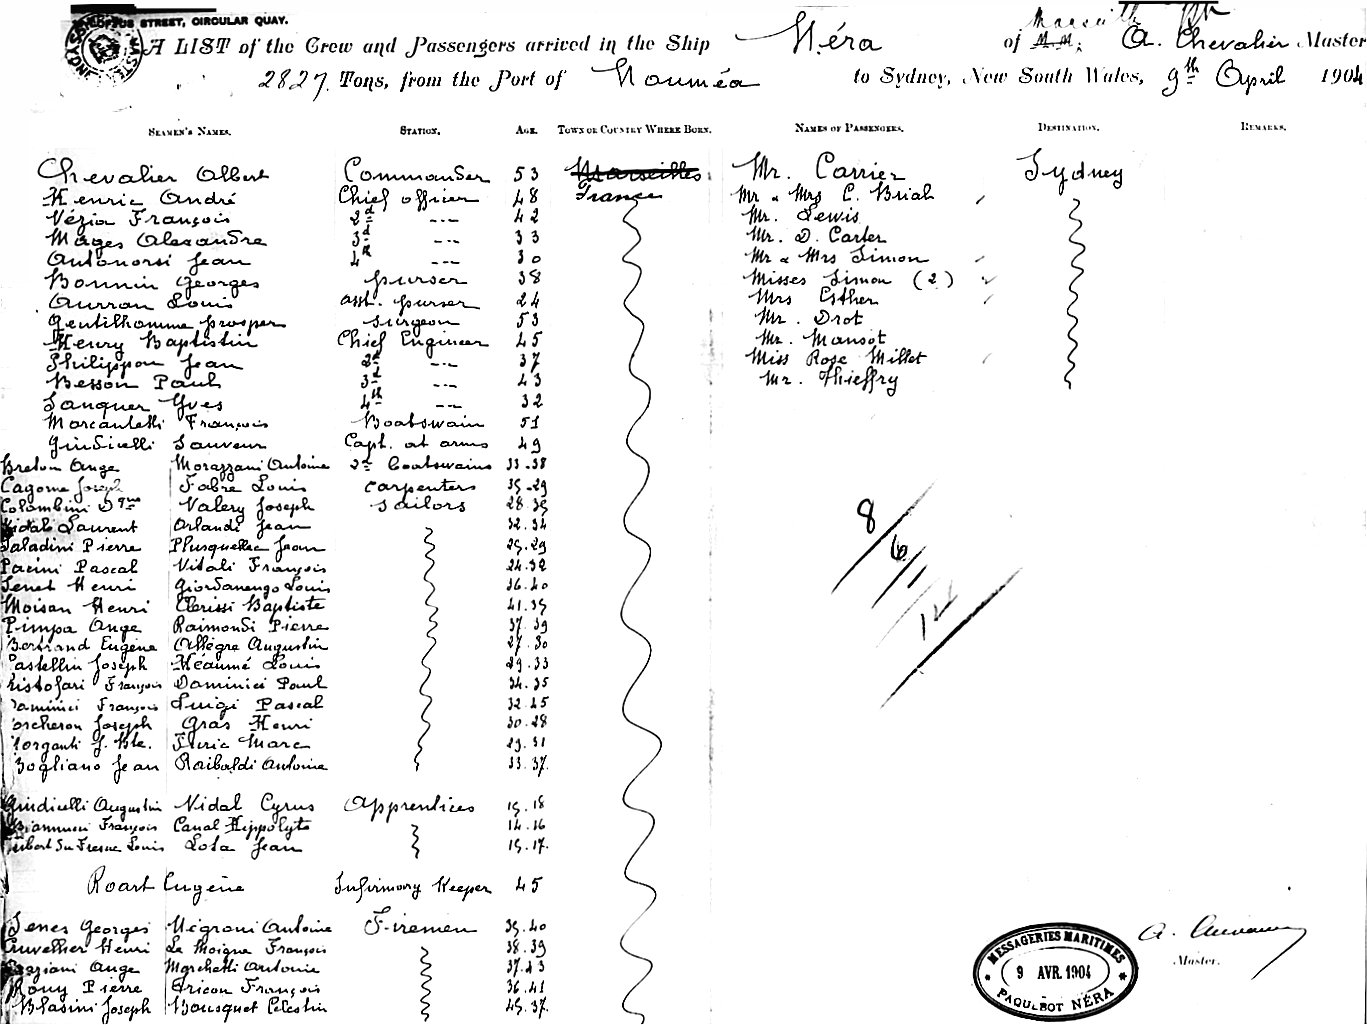 LOFTUS STREET, CIRCULAR QUAY.
A LIST of the Crew and Passengers arrived in the Ship Néra of M.M. Marseille A. Chevalier Master
2827 Tons, from the Port of Nouméa to Sydney, New South Wales, 9th April 1904
SEAMEN'S NAMES. STATION. AGE. TOWN OR COUNTRY WHERE BORN. NAMES OF PASSENGERS. DESTINATION. REMARKS.
Chevalier Albert Commander 53 Marseilles Mr. Carrier Sydney
Henric André Chief officer 48 France Mr & Mrs C. Briah
Vézia François 2d --- 42 Mr. Lewis
Mages Alexandre 3d --- 33 Mr. D. Carter
Antonorsi Jean 4th --- 30 Mr & Mrs Simon
Bonnin Georges purser 38 Misses Simon (2)
Aurran Louis asst. purser 24 Mrs Esther
Gentilhomme prosper surgeon 53 Mr. Drot
Henry Baptistin Chief Engineer 45 Mr. Mansot
Philippon Jean 2d --- 37 Miss Rose Millet
Besson Paul 3d --- 43 Mr. Thieffry
Sanquer Yves 4th --- 32
Marcantelli François Boatswain 51
Giudicelli Sauveur Capt. at arms 49
Breton Ange Morazzani Antoine 2d boatswains 33.38
Cagome Joseph Fabre Louis carpenters 35.29
Colombini Dque Valery Joseph sailors 28.35
Vidal Laurent Orlandi Jean 32.34
Saladini Pierre Plusquellec Jean 25.29
Pacini Pascal Vitali François 24.32
Senet Henri Giordanengo Louis 36.40
Moisan Henri Clerissi Baptiste 41.35
Pimpa Ange Raimondi Pierre 37.39
Bertrand Eugène Allègre Augustin 27.30
Castellin Joseph Héaumé Louis 29.33
Cristofari François Dominici Paul 34.35
Dominici François Luigi Pascal 32.45
Porcheron Joseph Gras Henri 30.28
Morganti J. Bte. Furic Marc 29.31
Bogliano Jean Raibaldi Antoine 33.37
8
6
1
Giudicelli Augustin Vidal Cyrus Apprentices 15.18
Giannucci François Canal Hippolyte 14.16
Imbert du Fresne Louis Lota Jean 15.17
Roart Eugène Infirmary Keeper 45
Senes Georges Négroni Antoine Firemen 35.40
Cuvellier Henri Le Moigne François 38.39
Graziani Ange Marchetti Antoine 37.43
Rouy Pierre Ericon François 36.41
Blasini Joseph Bousquet Célestin 45.37
Master.
MESSAGERIES MARITIMES
9 AVR. 1904
PAQUEBOT NÉRA